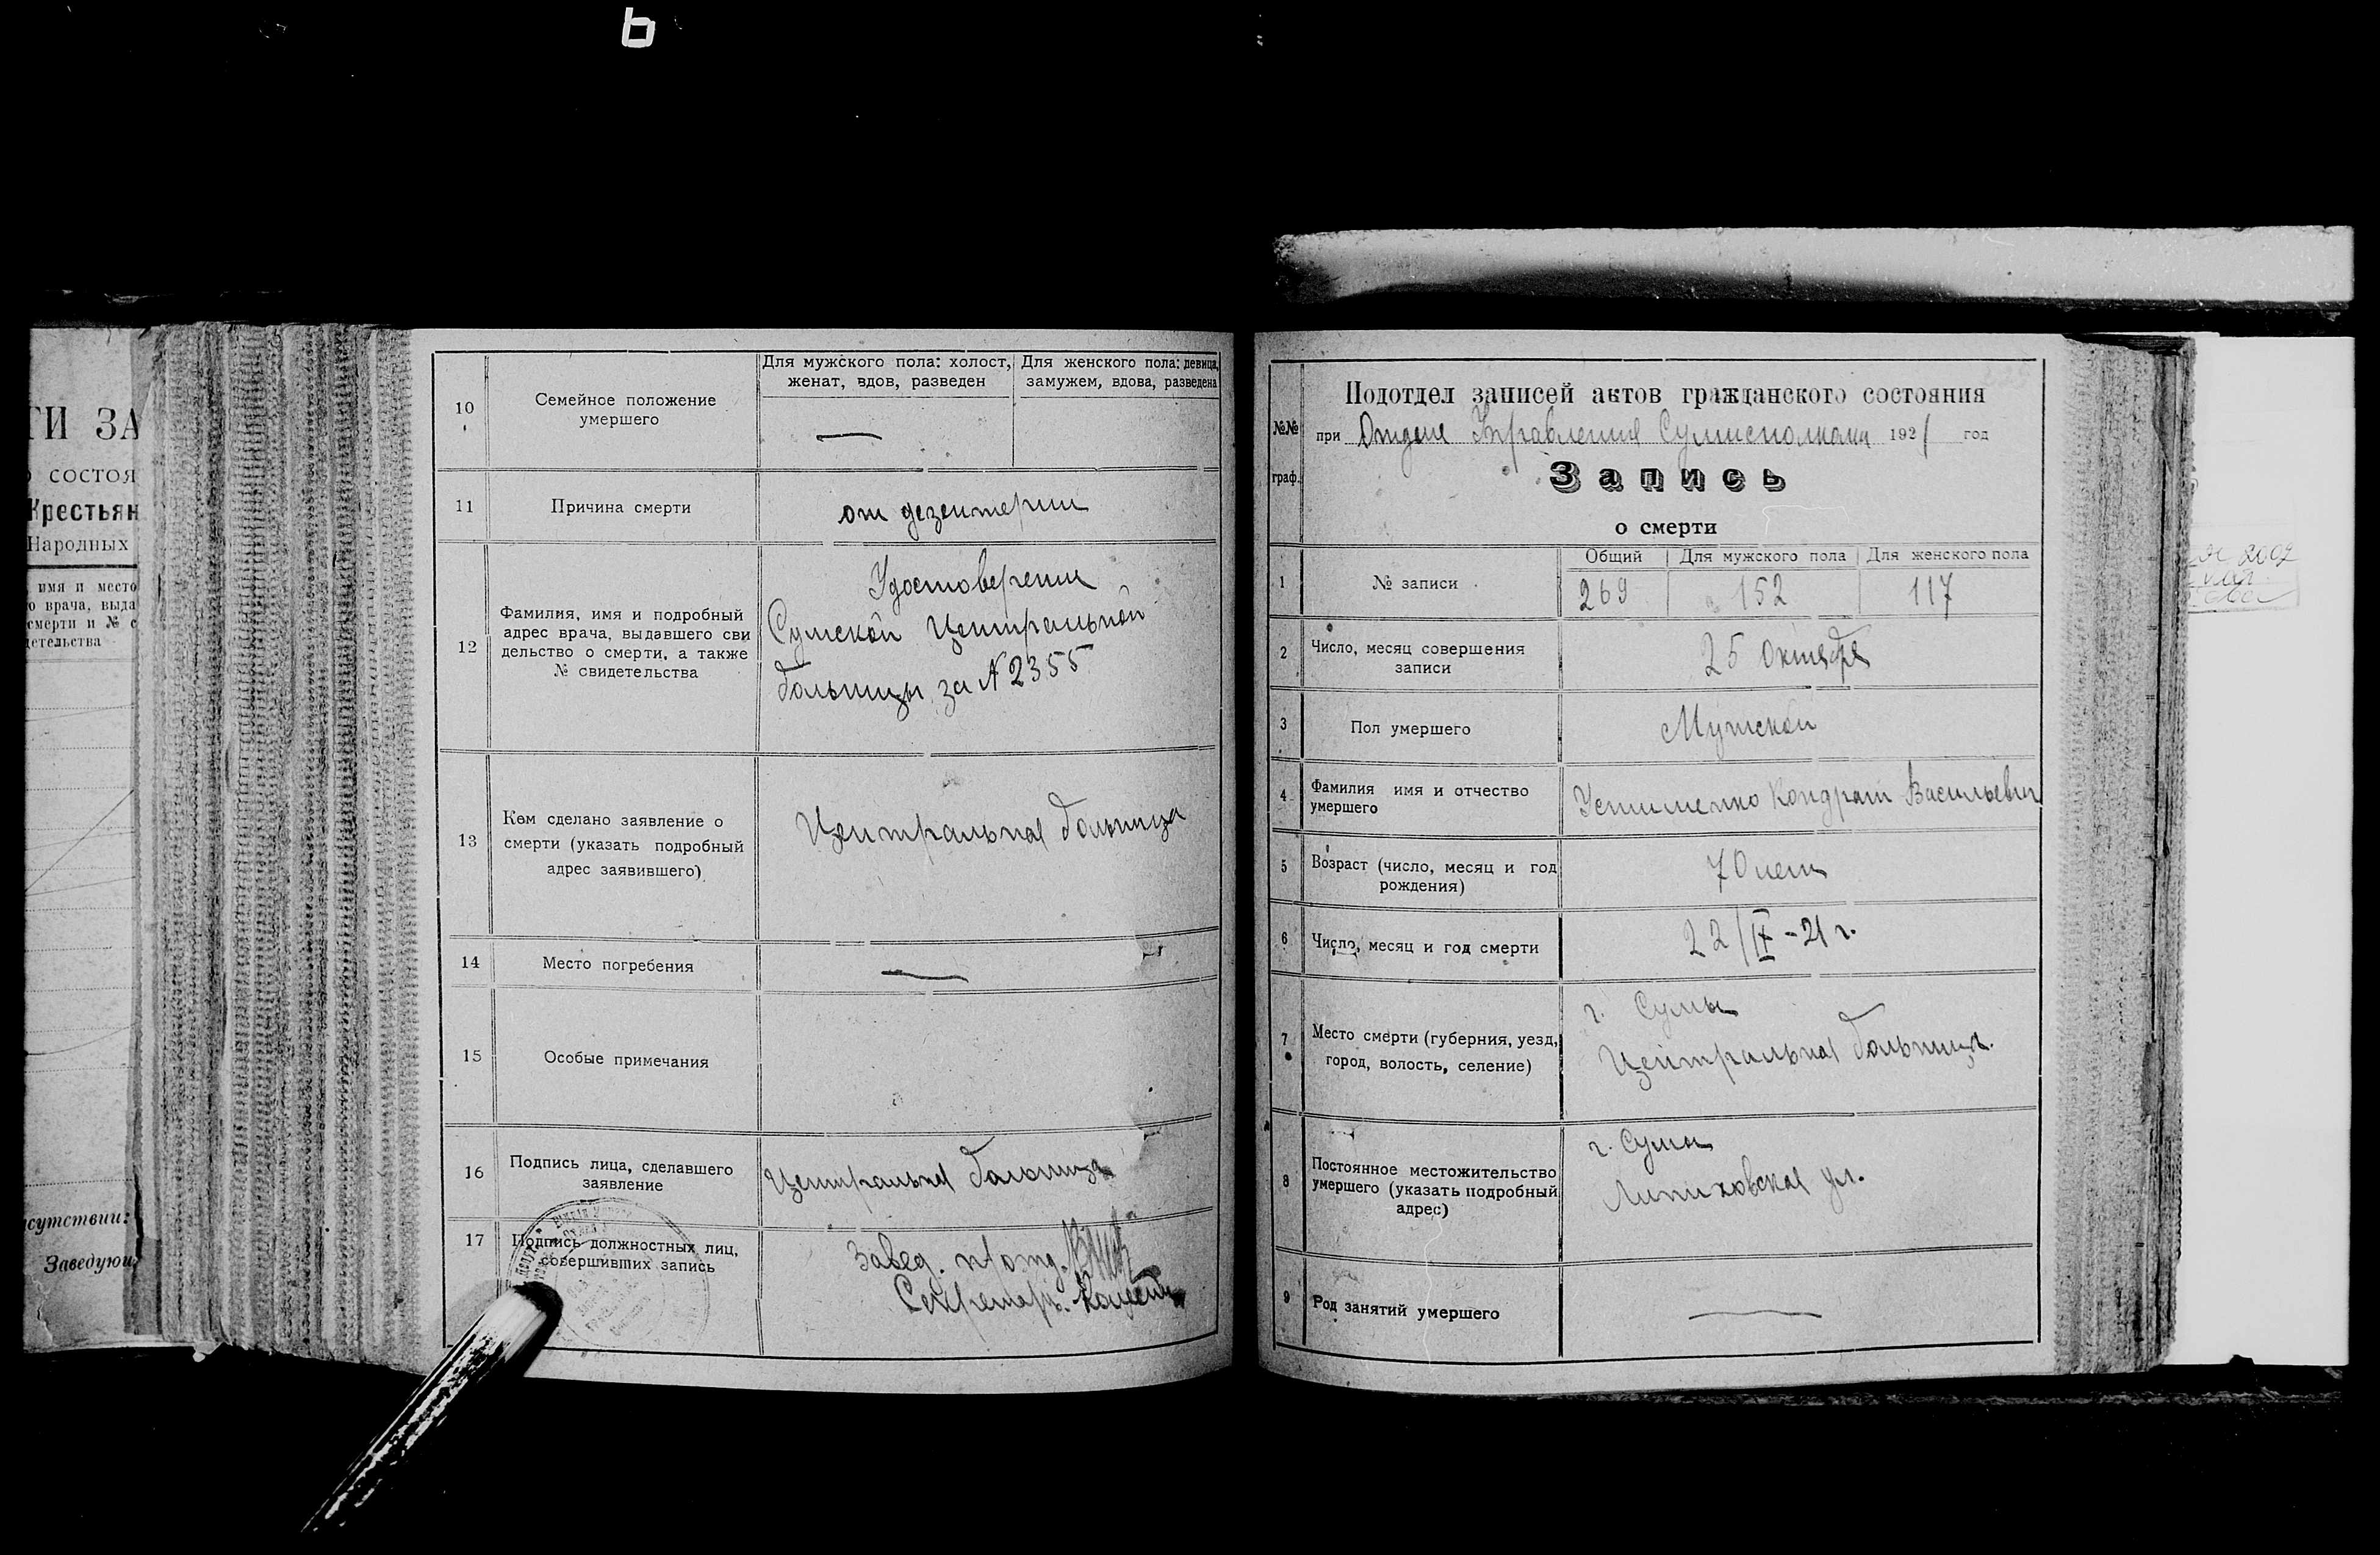 ТИ ЗА
о состоя
Крестьян
Народных
имя и место
о врача, выда
смерти и № с
детельства
сутствии:
Заведую
10
Семейное положение
умершего
Для мужского пола: холост,
женат, вдов, разведен
Для женского пола: девица,
замужем, вдова, разведена
—
11
Причина смерти
от дезентерии
12
Фамилия, имя и подробный
адрес врача, выдавшего сви
дельство о смерти, а также
№ свидетельства
Удостоверение
Сумской Центральной
больницы за №2355
13
Кем сделано заявление о
смерти (указать подробный
адрес заявившего)
Центральная больница
14
Место погребения
—
15
Особые примечания
16
Подпись лица, сделавшего
заявление
Центральная больница
17
Подпись должностных лиц,
совершивших запись
Завед. п/отд.
Секретарь
№№
граф.
Подотдел записей актов гражданского состояния
при Отделе Управления Сумисполкома 1921 год
Запись
о смерти
1
№ записи
Общий
Для мужского пола
Для женского пола
269
152
117
2
Число, месяц совершения
записи
25 Октября
3
Пол умершего
Мужской
4
Фамилия имя и отчество
умершего
Устименко Кондрат Васильевич
5
Возраст (число, месяц и год
рождения)
70 лет
6
Число, месяц и год смерти
22/IX-21 г.
7
Место смерти (губерния, уезд,
город, волость, селение)
г. Сумы
Центральная больница.
8
Постоянное местожительство
умершего (указать подробный
адрес)
г. Сумы
ул.
9
Род занятий умершего
—
2002